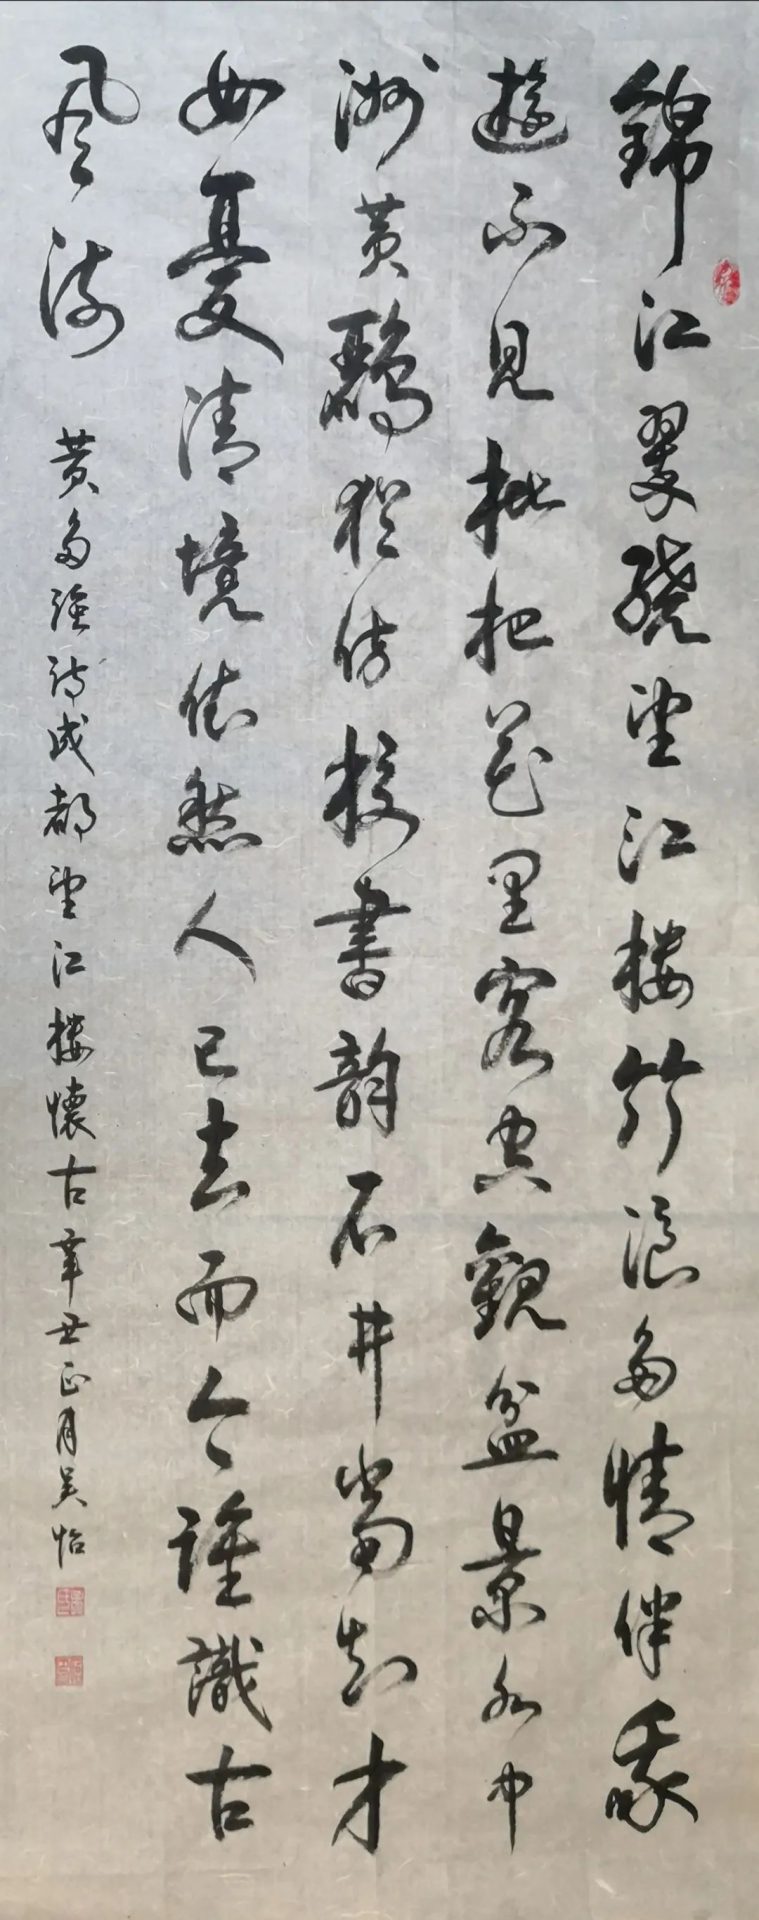 錦江翠繞望江樓竹浪多情伴我
遊不見枇杷花里客空觀盆景水中
洲黃鸝猶仿校書韻石井當知才
女憂清境依然人已去而今誰識古
風流
黃多强诗成都望江樓懷古辛丑正月吴怡